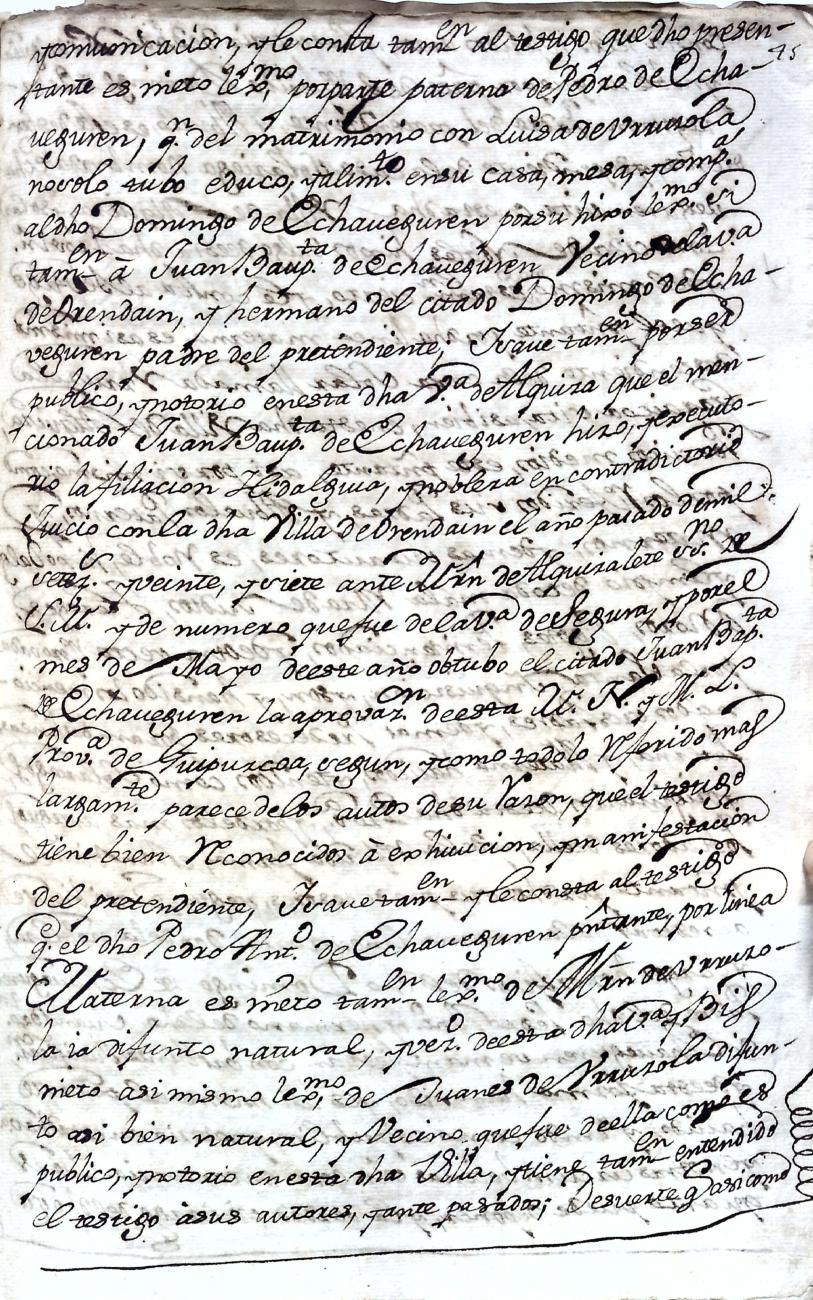 ycomunicacion, y le consta tam.en al testigo que dho presen-
75
tante es nieto lex.mo, por parte paterna de Pedro de Echa-
veguren, q.n del matrimonio con Luisa de Vrruzola
no solo tubo educo, y alim.to en su casa, mesa, y comp.a
al dho Domingo de Echaveguren por su hixo lex.mo si
tam.en â Juan Baup.ta de Echaveguren Vecino de la v.a
de Orendain, y hermano del citado Domingo de Echa-
veguren padre del pretendiente; Y save tam.en por ser
publico, y notorio en esta dha V.a de Alquiza que el men-
cionado Juan Baup.ta de Echaveguren hizo, y executo-
rio la filiacion Hidalguia, y nobleza en contradictorio
Juicio con la dha Villa de Orendain el año pasado de mil
setez.s y veinte, y siete ante Mrn de Alquizalete ss.no R
S.M. y de numero que fue de la v.a de Segura, y por el
mes de Mayo de este año obtubo el citado Juan Bap.ta
de Echaveguren la aprovaz.on de esta M. N. y M. L.
Prov.a de Guipuzcoa, segun, y como todo lo Referido mas
largam.te parece de los autos de su Razon, que el testigo
tiene bien Reconocidos â exhivicion, y manifestacion
del pretendiente, Y save tam.en y le consta al testigo
q.e el dho Pedro Ant.o de Echaveguren pntante, por linea
Materna es nieto tam.en lex.mo de Mrn de Vrruzo-
la ia difunto natural, y vez.o de esta dha V.a y Bis
nieto asi mismo lex.mo de Juanes de Vrruzola difun-
to asi bien natural, y Vecino que fue de ella como es
publico, y notorio en esta dha Villa, y tiene tam.en entendido
el testigo â sus autores, y ante pasados; De suerte q asi como